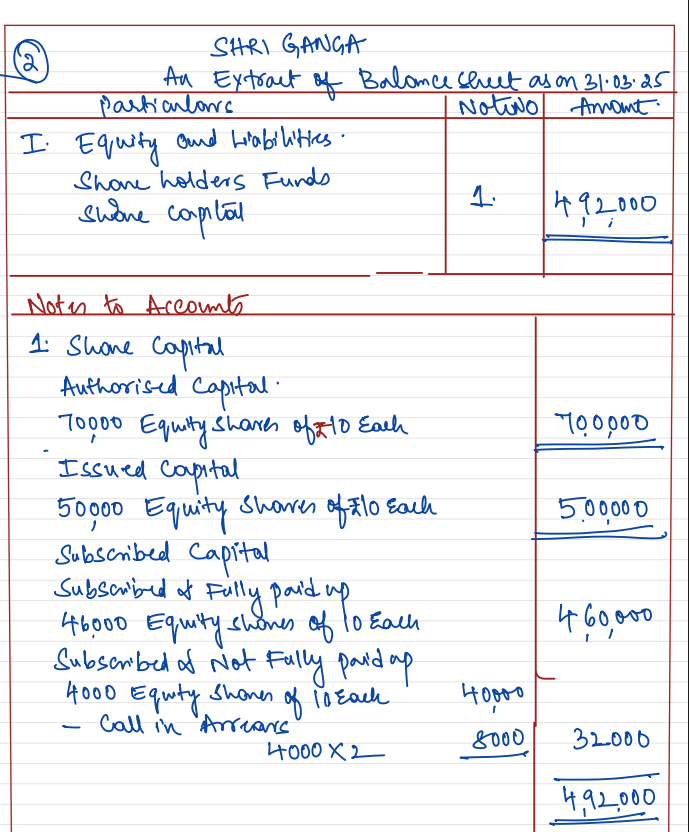 2
SHRI GANGA
An Extract of Balance Sheet as on 31.03.25
Particulars Note No Amount.
I. Equity and Liabilities.
Share holders Funds
Share capital 1. 4,92,000
Notes to Accounts
1. Share Capital
Authorised Capital.
70,000 Equity Shares of ₹10 Each 7,00,000
Issued Capital
50,000 Equity Shares of ₹10 Each 5,00,000
Subscribed Capital
Subscribed & Fully paid up
46,000 Equity shares of 10 Each 4,60,000
Subscribed & Not Fully paid up
4000 Equity Shares of 10 Each 40,000
- Call in Arrears
4000 X 2 8000 32000
4,92,000